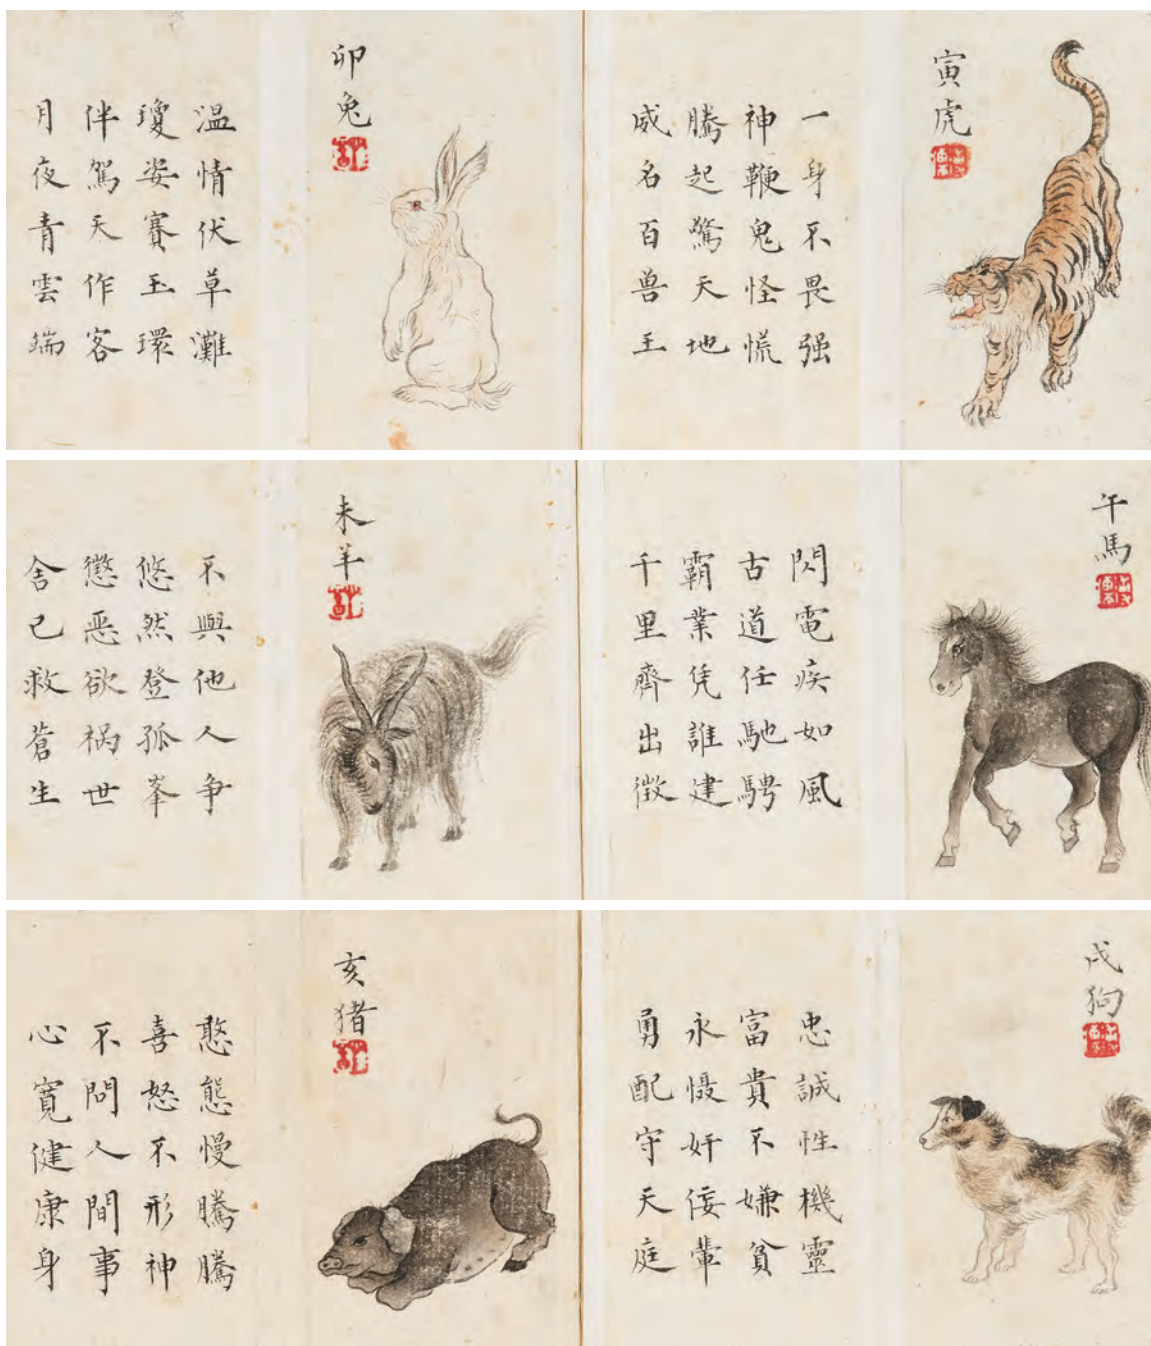 寅虎
一身不畏强
神鞭鬼怪慌
騰起驚天地
威名百兽王
卯兔
温情伏草灘
瓊姿賽玉環
伴駕天作客
月夜青雲端
午馬
閃電疾如風
古道任馳騁
霸業凭誰建
千里齊出徵
未羊
不與他人争
悠然登孤峯
懲恶欲祸世
舍己救蒼生
戌狗
忠誠性機靈
富貴不嫌貧
永慑奸佞輩
勇配守天庭
亥猪
憨態慢騰騰
喜怒不形神
不問人間事
心寬健康身